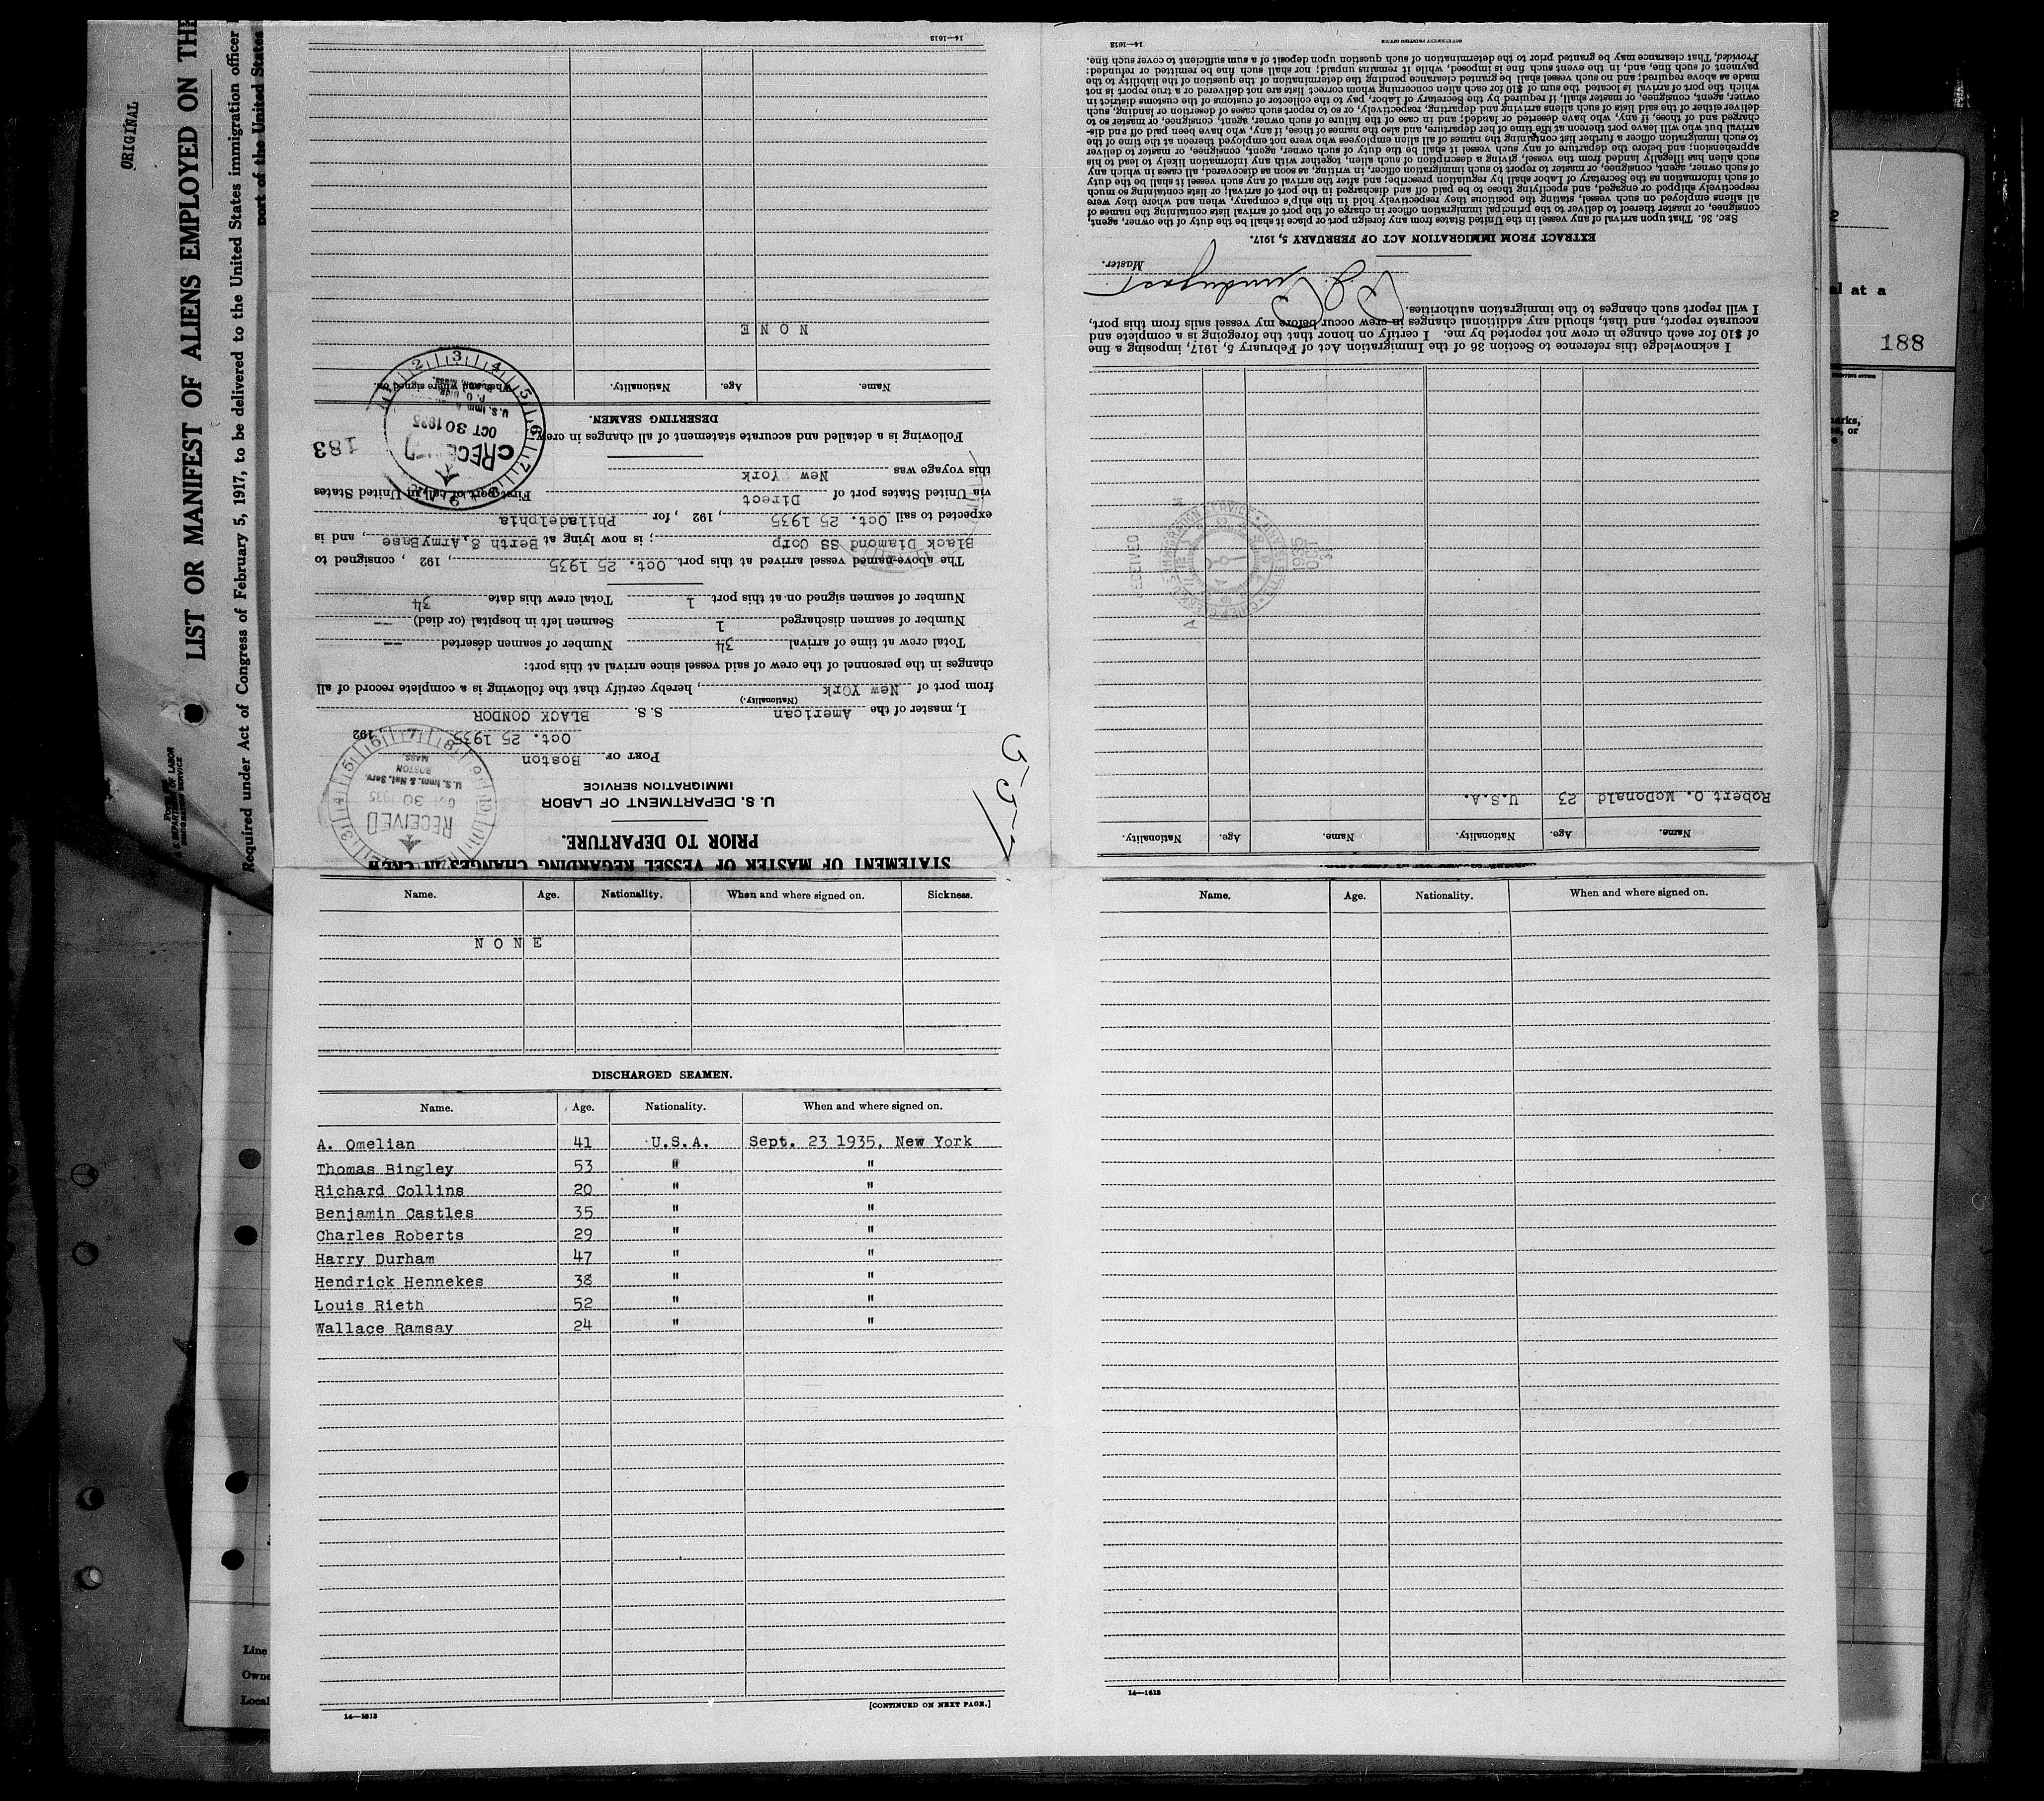 ORIGINAL
LIST OR MANIFEST OF ALIENS EMPLOYED ON THE
Required under Act of Congress of February 5, 1917, to be delivered to the United States immigration officer
port of the United States
STATEMENT OF MASTER OF VESSEL REGARDING CHANGES IN CREW
PRIOR TO DEPARTURE.
U. S. DEPARTMENT OF LABOR
IMMIGRATION SERVICE
PORT OF Boston
Oct. 25 1935, 192
RECEIVED
OCT 30 1935
U.S. Imm. & Nat. Serv.
BOSTON
MASS
I, master of the American S.S. BLACK CONDOR
(Nationality.)
from port of New York, hereby certify that the following is a complete record of all
changes in the personnel of the crew of said vessel since arrival at this port:
Total crew at time of arrival 34 Number of seamen deserted --
Number of seamen discharged 1 Seamen left in hospital (or died) --
Number of seamen signed on at this port 1 Total crew this date 34
The above-named vessel arrived at this port Oct. 25 1935, 192 , consigned to
Black Diamond SS Corp; is now lying at Berth 8.ArmyBase, and is
expected to sail Oct. 25 1935, 192 , for Philadelphia
via United States port of Direct First port of call in United States
this voyage was New York
183
Following is a detailed and accurate statement of all changes in crew
RECEIVED
OCT 30 1935
DESERTING SEAMEN.
Name. Age. Nationality. When and where signed on.
NONE
14—1613
Name. Age. Nationality. Name. Age. Nationality.
Robert O. McDonald 23 U.S.A.
RECEIVED
OCT
1935
I acknowledge this reference to Section 36 of the Immigration Act of February 5, 1917, imposing a fine
of $10 for each change in crew not reported by me. I certify on honor that the foregoing is a complete and
accurate report, and that, should any additional changes in crew occur before my vessel sails from this port,
I will report such changes to the immigration authorities.
Master.
EXTRACT FROM IMMIGRATION ACT OF FEBRUARY 5, 1917.
SEC. 36. That upon arrival of any vessel in the United States from any foreign port or place it shall be the duty of the owner, agent,
consignee, or master thereof to deliver to the principal immigration officer in charge of the port of arrival lists containing the names of
all aliens employed on such vessel, stating the positions they respectively hold in the ship's company, when and where they were
respectively shipped or engaged, and specifying those to be paid off and discharged in the port of arrival; or lists containing so much
of such information as the Secretary of Labor shall by regulation prescribe; and after the arrival of any such vessel it shall be the duty
of such owner, agent, consignee, or master to report to such immigration officer, in writing, as soon as discovered, all cases in which any
such alien has illegally landed from the vessel, giving a description of such alien, together with any information likely to lead to his
apprehension; and before the departure of any such vessel it shall be the duty of such owner, agent, consignee, or master to deliver
to such immigration officer a further list containing the names of all alien employees who were not employed thereon at the time of the
arrival but who will leave port thereon at the time of her departure, and also the names of those, if any, who have been paid off and dis-
charged and of those, if any, who have deserted or landed; and in case of the failure of such owner, agent, consignee, or master so to
deliver either of the said lists of such aliens arriving and departing, respectively, or so to report such cases of desertion or landing, such
owner, agent, consignee, or master shall, if required by the Secretary of Labor, pay to the collector of customs of the customs district in
which the port of arrival is located the sum of $10 for each alien concerning whom correct lists are not delivered or a true report is not
made as above required; and no such vessel shall be granted clearance pending the determination of the question of the liability to the
payment of such fine, and, in the event such fine is imposed, while it remains unpaid; nor shall such fine be remitted or refunded:
Provided, That clearance may be granted prior to the determination of such question upon deposit of a sum sufficient to cover such fine.
14—1613
GOVERNMENT PRINTING OFFICE
Name. Age. Nationality. When and where signed on. Sickness.
NONE
DISCHARGED SEAMEN.
Name. Age. Nationality. When and where signed on.
A. Omelian 41 U.S.A. Sept. 23 1935, New York
Thomas Bingley 53 " "
Richard Collins 20 " "
Benjamin Castles 35 " "
Charles Roberts 29 " "
Harry Durham 47 " "
Hendrick Hennekes 38 " "
Louis Rieth 52 " "
Wallace Ramsay 24 " "
14—1613
[CONTINUED ON NEXT PAGE.]
Name. Age. Nationality. When and where signed on.
14—1613
al at a
188
Line
Owne
Local